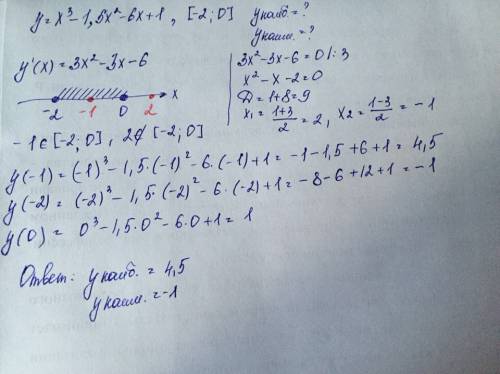 y=x³-1,5x²-6x+1, [-2;0] yнаиб.=?
yнаим.=?
y'(x)=3x²-3x-6
-2 -1 0 2 x
3x²-3x-6=0 |:3
x²-x-2=0
Д=1+8=9
x₁=(1+3)/2=2, x₂=(1-3)/2=-1
-1∈[-2;0], 2∉[-2;0]
y(-1)=(-1)³-1,5·(-1)²-6·(-1)+1=-1-1,5+6+1=4,5
y(-2)=(-2)³-1,5·(-2)²-6·(-2)+1=-8-6+12+1=-1
y(0)=0³-1,5·0²-6·0+1=1
Ответ: yнаиб.=4,5
yнаим.=-1